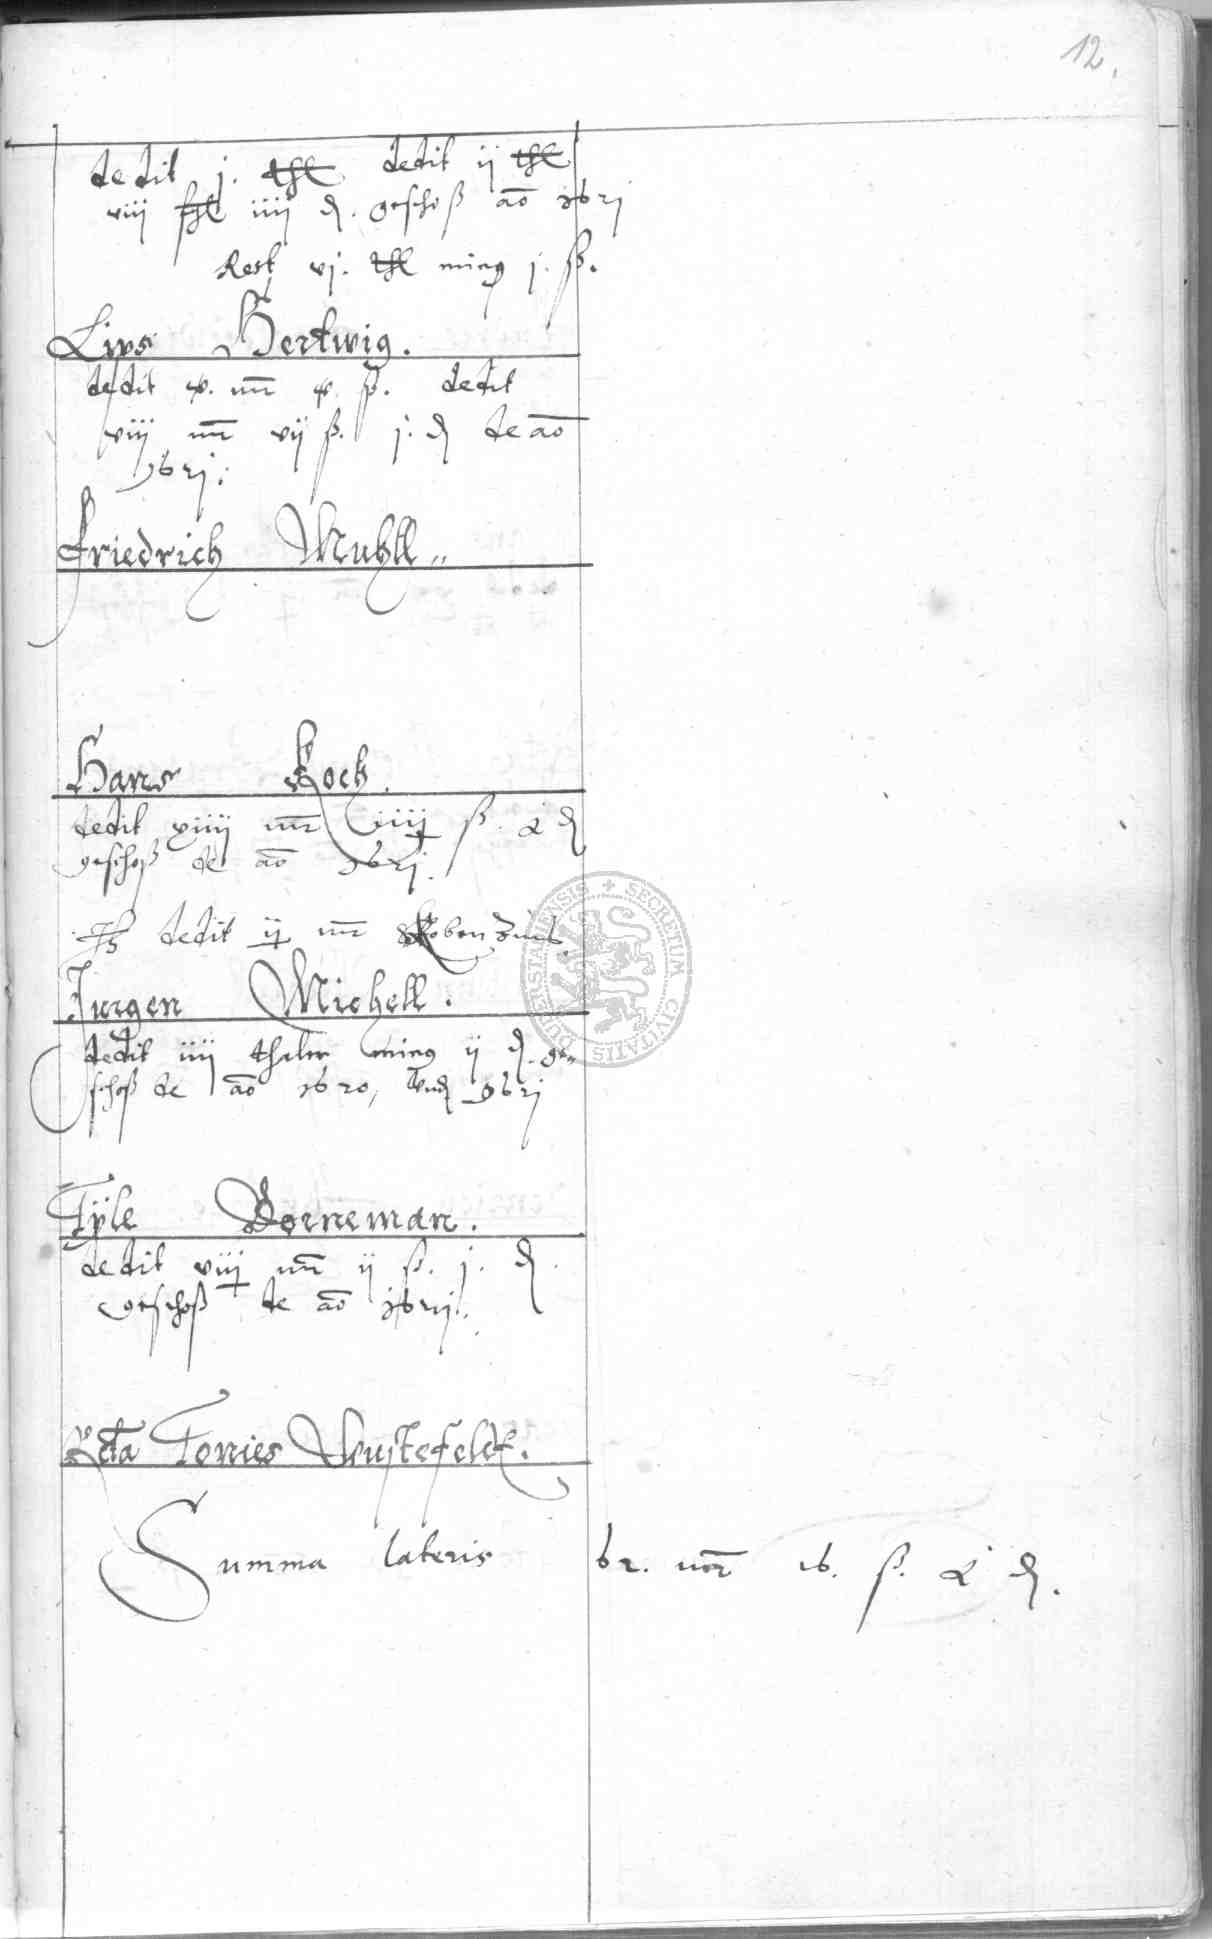 12.
dedit j. thl dedit ij thl
viij ßl iiij d. geschoß ao 1621
Rest vj. thl ming j. ß.
Lips Hertwig.
dedit x. mr x. ß. dedit
viij mr vij ß. j. d de ao
1621.
Friedrich Muhll
Hans Koch.
dedit xiiij mr iiij ß. d
geschoß de ao 1621.
dedit ij mr
Jurgen Michell.
dedit iiij thaler ming ij d. ge„
schoß de ao 1620, und 1621
Tÿle Borneman.
dedit viij mr ij ß. j. d.
geschoß de ao 1621.
Rcta Tonies Wustefeldt.
Summa lateris 62. mr 16. ß. d.
SECRETUM CIVITATIS DUDERSTADIENSIS